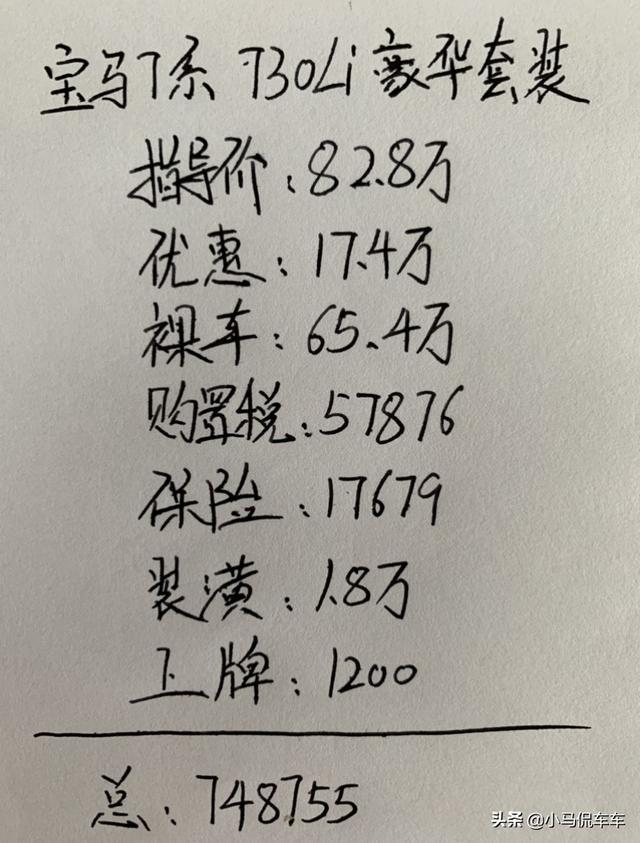 宝马7系 730Li 豪华套装
指导价:82.8万
优惠:17.4万
裸车:65.4万
购置税:57876
保险:17679
装潢:1.8万
上牌:1200
总:748755
头条 @小马侃车车